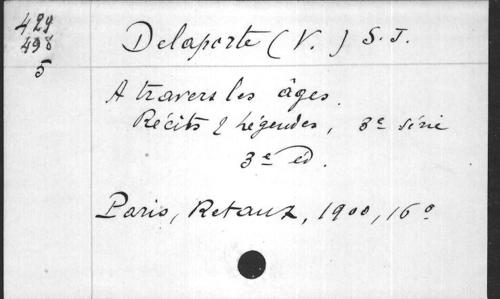 424
498
5
Delaporte (V.) S. J.
A travers les âges.
Récits & légendes, 3e série
3e éd.
Paris, Retaux, 1900, 16o